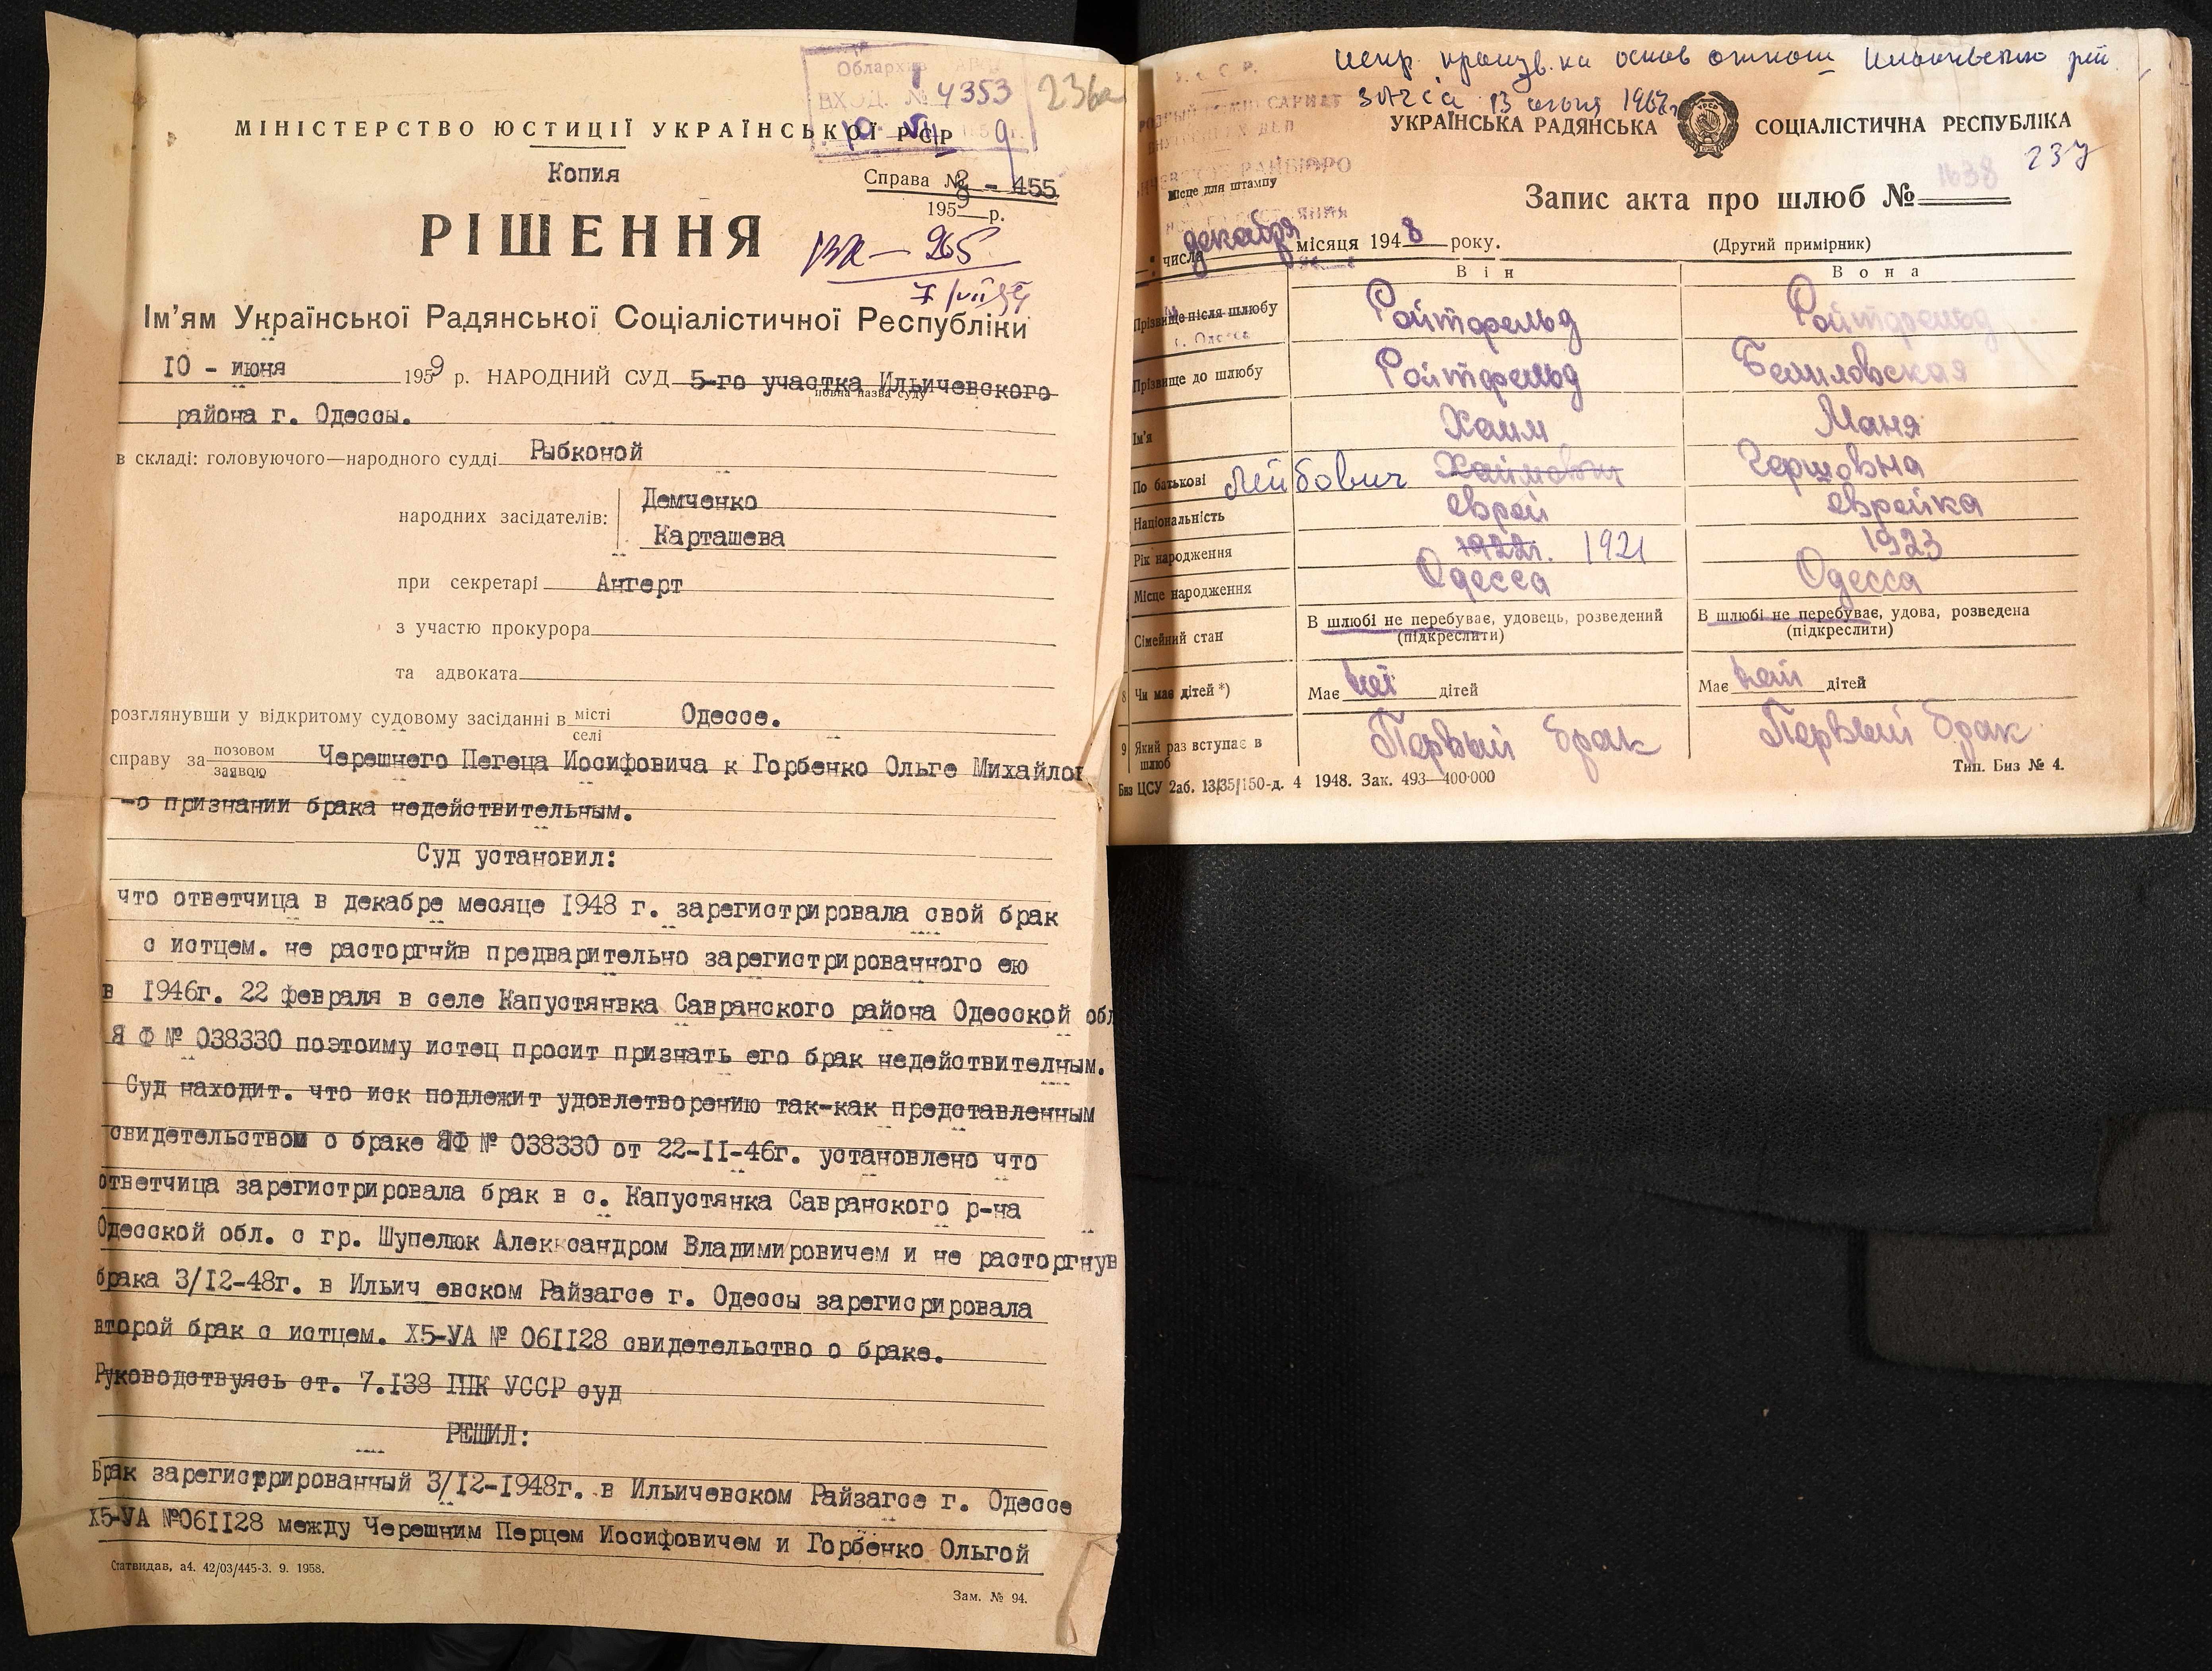 Облархив
ВХОД. № 4353
236а
МІНІСТЕРСТВО ЮСТИЦІЇ УКРАЇНСЬКОЇ РСР
Копия
Справа № 2 - 455
1959 р.
РІШЕННЯ
265
7/VII 59
Ім'ям Української Радянської Соціалістичної Республіки
10 - июня 1959 р. НАРОДНИЙ СУД 5-го участка Ильичевского
повна назва суду
района г. Одессы.
в складі: головуючого—народного судді Рыбконой
народних засідателів: Демченко
Карташева
при секретарі Ангерт
з участю прокурора
та адвоката
розглянувши у відкритому судовому засіданні в місті Одессе.
селі
справу за позовом Черешнего Пегеца Иосифовича к Горбенко Ольге Михайлов
заявою
-о признании брака недействительным.
Суд установил:
что ответчица в декабре месяце 1948 г. зарегистрировала свой брак
с истцем. не расторгнйв предварительно зарегистрированного ею
в 1946г. 22 февраля в селе Капустянвка Савранского района Одесской обл
Я Ф № 038330 поэтоиму истец просит признать его брак недействителным.
Суд находит. что иск подлежит удовлетворению так-как представленным
свидетельством о браке ЯФ № 038330 от 22-II-46г. установлено что
ответчица зарегистрировала брак в с. Капустянка Савранского р-на
Одесской обл. с гр. Шупелюк Александром Владимировичем и не расторгнув
брака 3/12-48г. в Ильич евском Райзагсе г. Одессы зарегисрировала
второй брак с истцем. Х5-УА № 061128 свидетельство о браке.
Руководствуясь ст. 7.138 ГПК УССР суд
РЕШИЛ:
Брак зарегистррированный 3/12-1948г. в Ильичевском Райзагсе г. Одессе
Х5-УА №061128 между Черешним Перцем Иосифовичем и Горбенко Ольгой
Статвидав, а4. 42/03/445-3. 9. 1958.
Зам. № 94.
испр. произв. на основ отнош Ильичевского рай.
ЗАГСа 13 июня 1967г
УКРАЇНСЬКА РАДЯНСЬКА СОЦІАЛІСТИЧНА РЕСПУБЛІКА
237
РАЙБЮРО
Місце для штампу
1638
Запис акта про шлюб №
числа декабря місяця 1948 року.
(Другий примірник)
Він Вона
Прізвище після шлюбу Ройтфельд Ройтфельд
г. Одесса
Прізвище до шлюбу Ройтфельд Безиловская
Ім'я Хаим Маня
По батькові Лейбович Хаимович Гершовна
Національність еврей еврейка
Рік народження 1922г. 1921 1923
Місце народження Одесса Одесса
Сімейний стан В шлюбі не перебуває, удовець, розведений В шлюбі не перебуває, удова, розведена
(підкреслити) (підкреслити)
8 Чи має дітей *) Має нет дітей Має нет дітей
9 Який раз вступає в шлюб Первый брак Первый брак
Биз ЦСУ 2аб. 13/35/150-д. 4 1948. Зак. 493—400·000
Тип. Биз № 4.